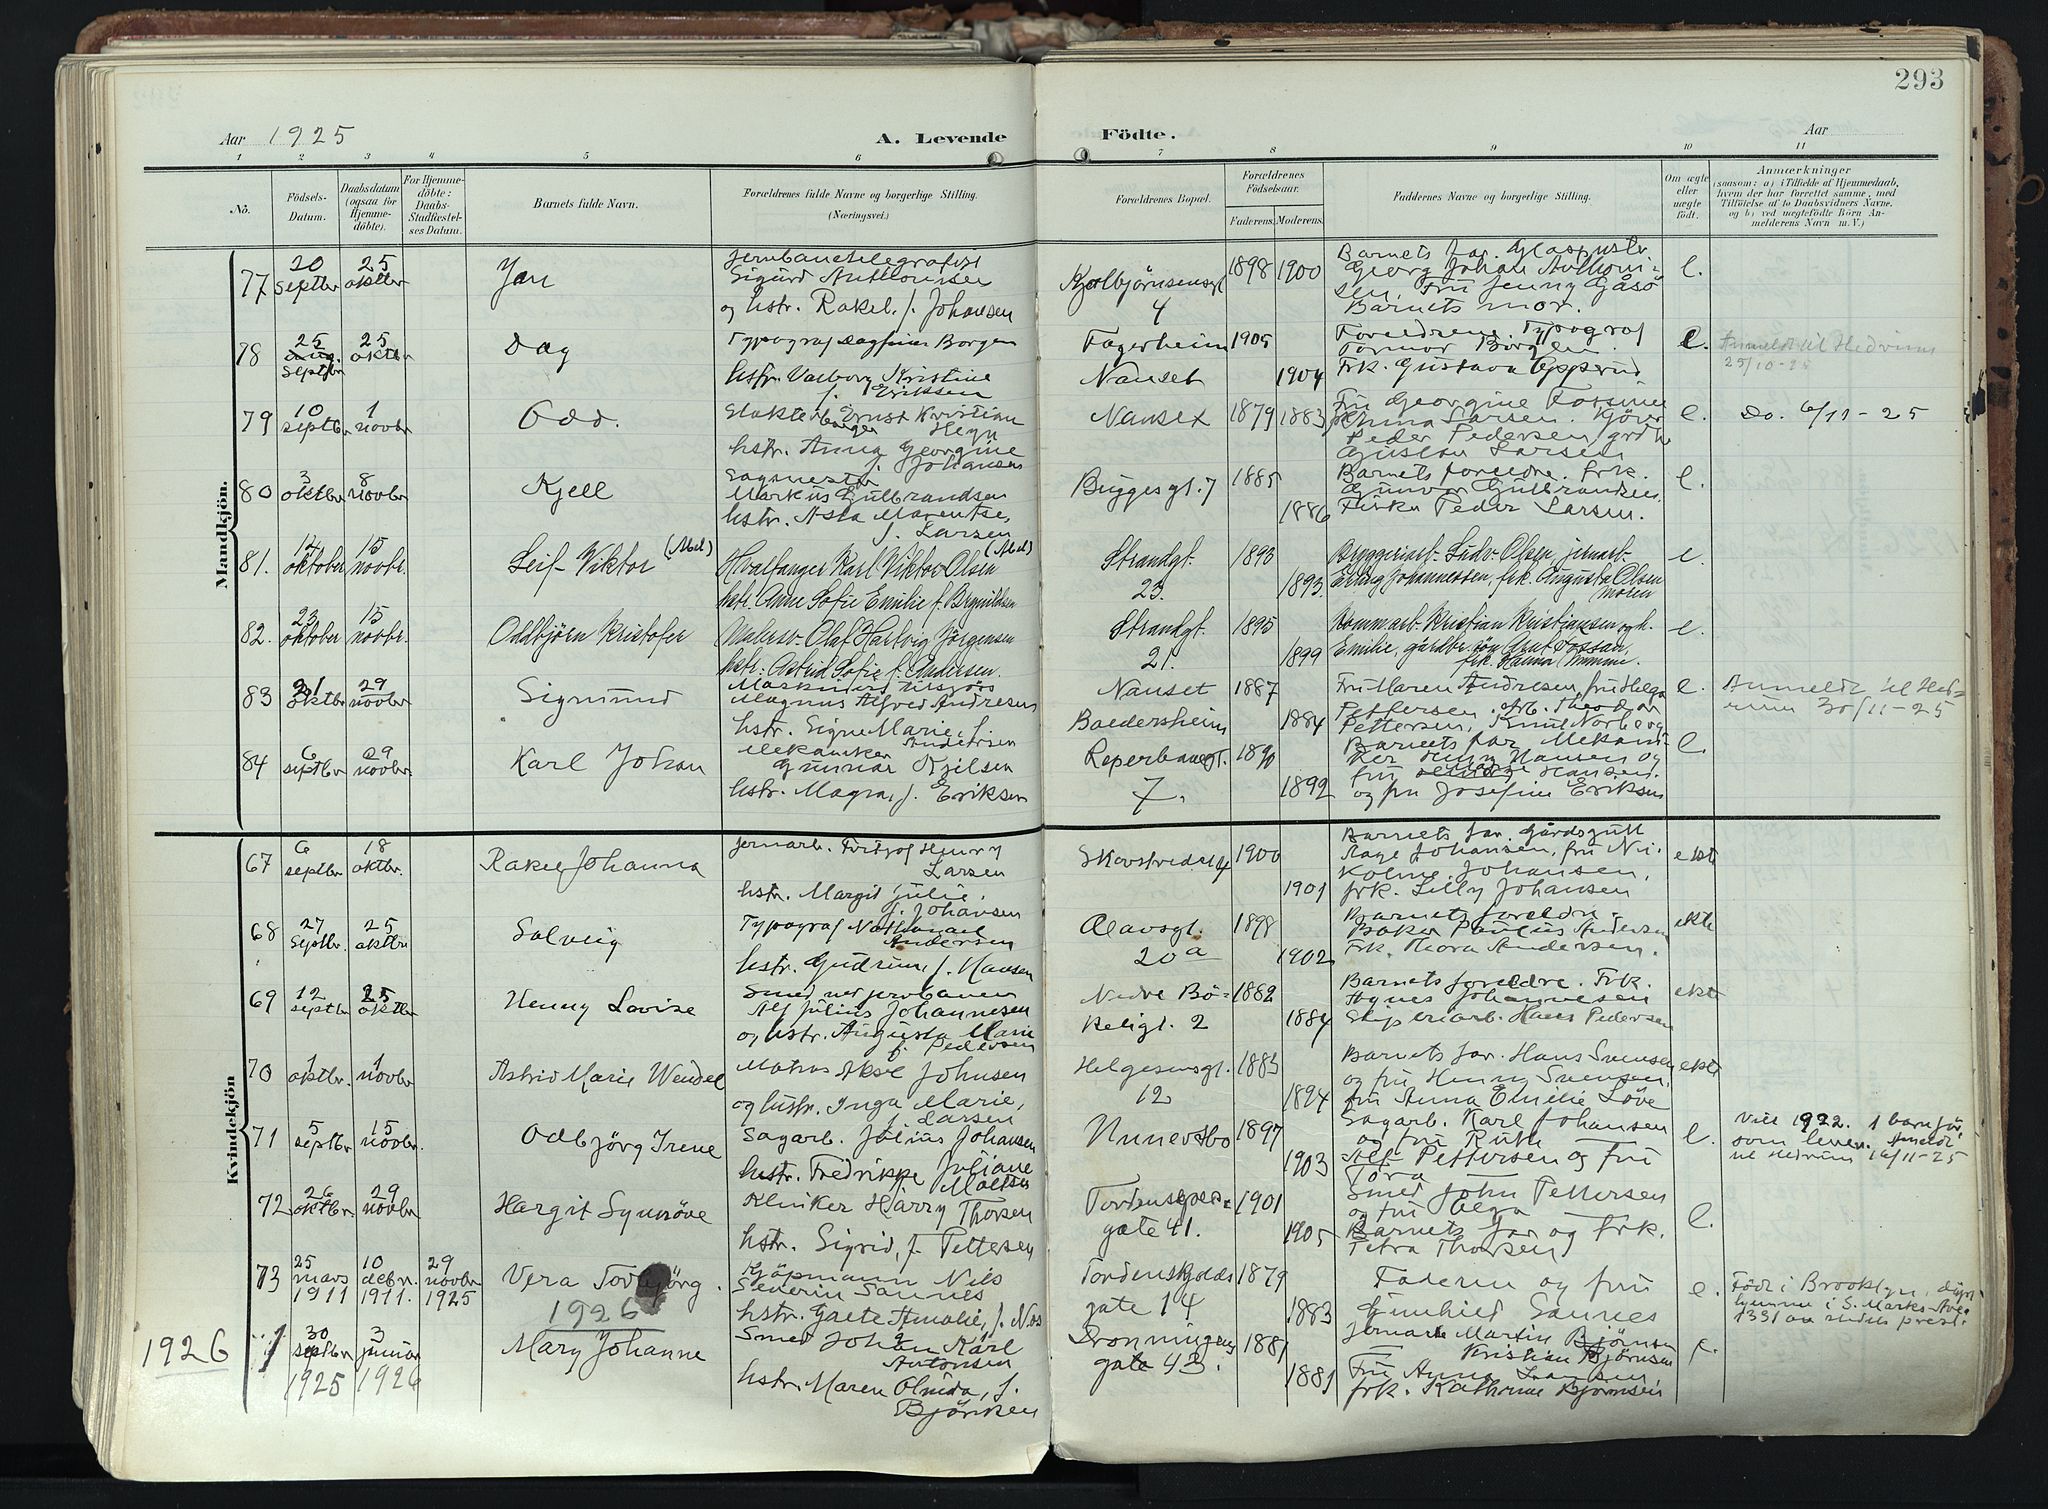 293
Aar 1925
A. Levende Födte.
Aar
1 2 3 4 5 6 7 8 9 10 11
No.
Födsels-Datum.
Daabsdatum (ogsaa for Hjemme-döbte).
For Hjemme-döbte: Daabs-Stadfæstel-ses Datum.
Barnets fulde Navn.
Forældrenes fulde Navne og borgerlige Stilling.
(Næringsvei.)
Forældrenes Bopæl.
Forældrenes Födselsaar.
Faderens. Moderens.
Faddernes Navne og borgerlige Stilling.
Om ægte eller uægte födt.
Anmærkninger
(saasom: a) i Tilfælde af Hjemmedaab,
hvem der har forrettet samme, med
Tilföielse af to Daabsvidners Navne,
og b) ved uægtefödte Börn An-
melderens Navn m. V.)
Mandkjön.
77 septbr 25 oktbr Jan
Sigurd Anthonisen
og hstr. Rakel. f. Johansen
4
1898 1900
Barnets far.
Georg Johan Anthoni-
sen, Fru Jenny Gåsö
Barnets mor.
e.
78 25 septbr 25 oktbr Dag
Typograf Dagfinn Borgen
hstr. Valborg Kristine
f. Eriksen
Fagerheim
Nanset
1905 1904
Foreldrene. Typograf
Tormor Borgen.
Frk. Gustava
e.
Anmeldt til Hedrum
25/10-25
79 10 septbr 1 novbr Odd.
Ernst Kristian
hstr. Anna Georgine
f. Johansen
Nanset
1879 1883
Fru Georgine
Anna Larsen.
Peder Pedersen,
Gustav Larsen
e.
Do. 6/11-25
80 3 oktbr 8 novbr Kjell
Markus Gulbrandsen
hstr. Asta Marentse,
f. Larsen
Buggesgt. 7
1885 1886
Barnets foreldre. frk.
Gunvor Gulbrandsen
Peder Larsen.
e.
81. 14 oktober 15 novbr. Leif Viktor (Abel)
Hvalfanger Karl Viktor Olsen (Abel)
hstr. Anne Sofie Emilie f. Brynildsen
Strandgt.
23.
1893 1893
Bryggeriarb. Ludv. Olsen, jernarb.
Erling Johannessen, frk. Augusta Olsen
moren
e.
82. 23 oktober 15 novbr. Oddbjörn Kristofer
Malersv. Olaf Hartvig Jörgensen
hstr. Astrid Sofie f. Andersen.
Strandgt.
21.
1895 1899
Kommarb. Kristian Kristiansen og h.
Emilie,
frk. Hanna
e.
83 oktbr 29 novbr Sigmund
Magnus Alfred Andresen
hstr. Signe Marie, f.
Andersen
Nanset
Boedersheim
1887 1884
Fru Maren Andresen, fru Helga
Pettersen.
Pettersen, Knut Norberg
e.
Anmeldt til Hed-
rum 30/11-25
84 6 septbr 29 novbr Karl Johan
Mekaniker
Gunnar Kjelsen
hstr. Magna, f. Eriksen
Reperbanegt.
7.
1890 1892
Barnets far Mekani-
ker Henry Hansen og
fru Hansen.
og fru Josefine Eriksen
e.
Kvindekjön
67 6 septbr 18 oktbr. Rakel Johanna
Jernarb. Fritjof Henry
Larsen
hstr. Margit Julie,
f. Johansen
1900 1901
Barnets far. Gårdsgutt
Aage Johansen, fru Ni-
koline Johansen,
frk. Lilly Johansen
ekte
68 27 septbr. 25 oktbr Solveig
Typograf Nathanael
Andersen
hstr. Gudrun, f. Hansen
Olavsgt.
20a
1898 1902
Barnets foreldre.
Baker Paulus Andersen
Frk. Thora Andersen.
ekte
69 12 septbr 25 oktbr Henny Lovise
Smed ved jernbanen
Alf Julius Johannesen
og hstr. Augusta Marie
f. Pedersen
Nedre Bö-
keligt. 2
1882 1884
Barnets foreldre. Frk.
Agnes Johannesen
Hans Pedersen
ekte
70 1 oktbr. 1 novbr. Astrid Marie Wendel
Matros Aksel Johnsen
og hustr. Inga Marie,
f. Larsen
Helgesensgt.
12
1883 1894
Barnets far. Hans Svensen
og fru Henny Svensen,
fru Anna Emilie Löve
ekte
71 5 septbr 15 novbr. Odbjörg Irene
Sagarb. Julius Johansen
hstr. Fredrikke Juliane
f. Madsen
1897 1903
Sagarb. Karl Johansen
og fru Ruth
Alf Pettersen og fru
Tora
e.
Viet 1922. 1 barn för
som lever. Anmeldt
til Hedrum 16/11-25
72 26 oktbr. 29 novbr Margit Synnöve
Klinker Harry Thorsen
hstr. Sigrid, f. Pettersen
Tordenskjolds-
gate 41.
1901 1905
Smed John Pettersen
og fru Helga
Barnets far og Frk.
Petra Thorsen
e.
73 25 mars 1911 10 debr. 1911. 29 novbr 1925 Vera Torbjörg.
Kjöpmann Nils
Severin Sannes
hstr. Grete Amalie, f. Næs
Tordenskjolds
gate 14
1879 1883
Faderen og fru
Gunhild Sannes
e.
Födt i Brooklyn, döpt
hjemme i S. Marks Ave
1391 av stedets prest.
1926
1926 1 30 septbr 1925 3 januar 1926 Mary Johanne
Smed Johan Karl
Antonsen
hstr. Maren Olida, f.
Björnsen
Dronningens
gate 43.
1881 1881
Jernarb. Martin Björnsen
Kristian Björnsen
Fru Anna Larsen
frk. Kathrine Bjørnsen
e.